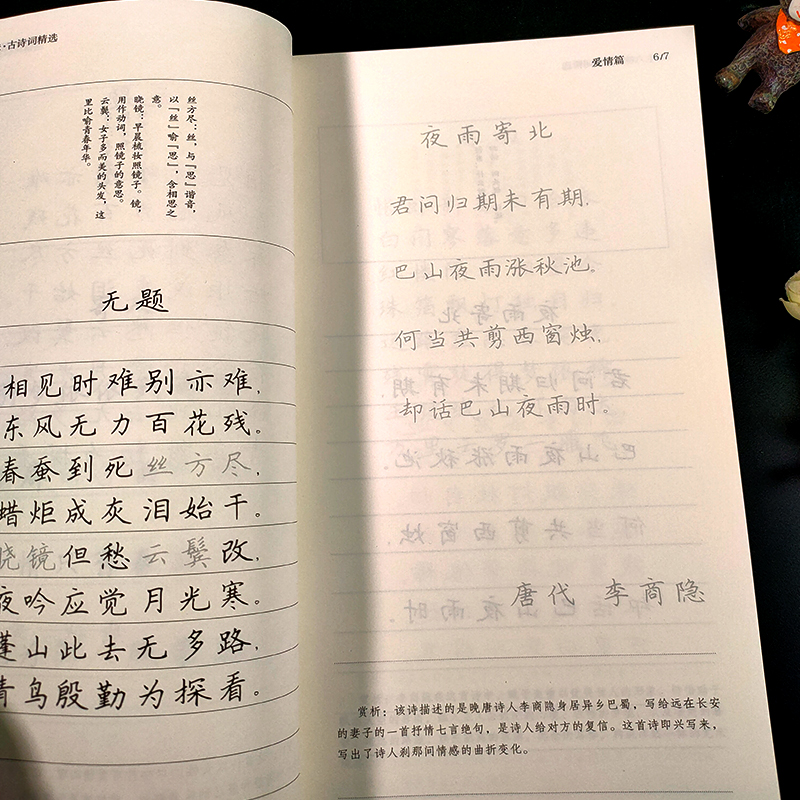 ·古诗词精选
丝方尽：丝，与「思」谐音，
以「丝」喻「思」，含相思之
意。
晓镜：早晨梳妆照镜子。镜，
用作动词，照镜子的意思。
云鬓：女子多而美的头发，这
里比喻青春年华。
无题
相见时难别亦难，
东风无力百花残。
春蚕到死丝方尽，
蜡炬成灰泪始干。
晓镜但愁云鬓改，
夜吟应觉月光寒。
蓬山此去无多路，
青鸟殷勤为探看。
爱情篇 6/7
夜雨寄北
君问归期未有期，
巴山夜雨涨秋池。
何当共剪西窗烛，
却话巴山夜雨时。
唐代 李商隐
赏析：该诗描述的是晚唐诗人李商隐身居异乡巴蜀，写给远在长安
的妻子的一首抒情七言绝句，是诗人给对方的复信。这首诗即兴写来，
写出了诗人刹那间情感的曲折变化。